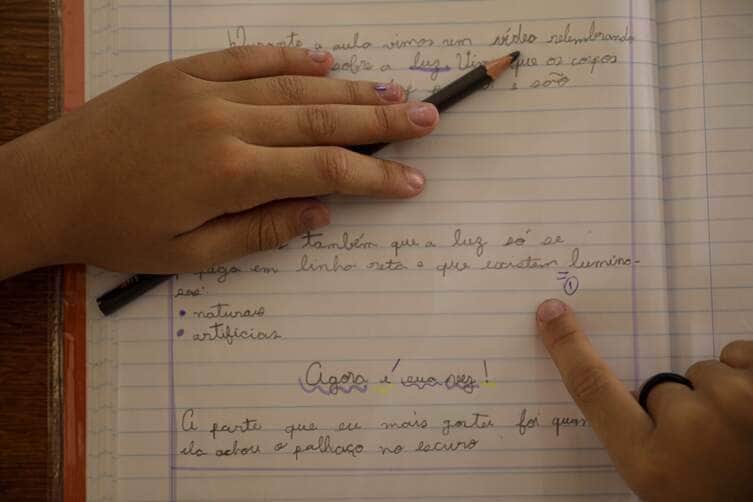 Durante a aula vimos um vídeo relembrando
sobre a luz. Vi que os corpos
e são
também que a luz só se
paga em linha reta e que existem lumino-
sos:
= ①
• naturais
• artificias
Agora é sua vez!
A parte que eu mais gostei foi quan
ela achou o palhaço no escuro